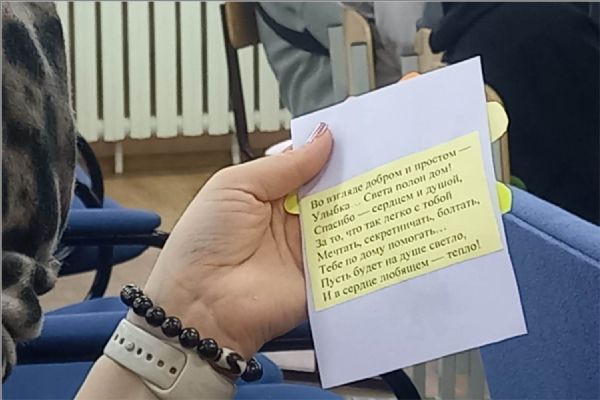 Во взгляде добром и простом —
Улыбка... Света полон дом!
Спасибо — сердцем и душой,
За то, что так легко с тобой
Мечтать, секретничать, болтать,
Тебе по дому помогать...
Пусть будет на душе светло,
И в сердце любящем — тепло!